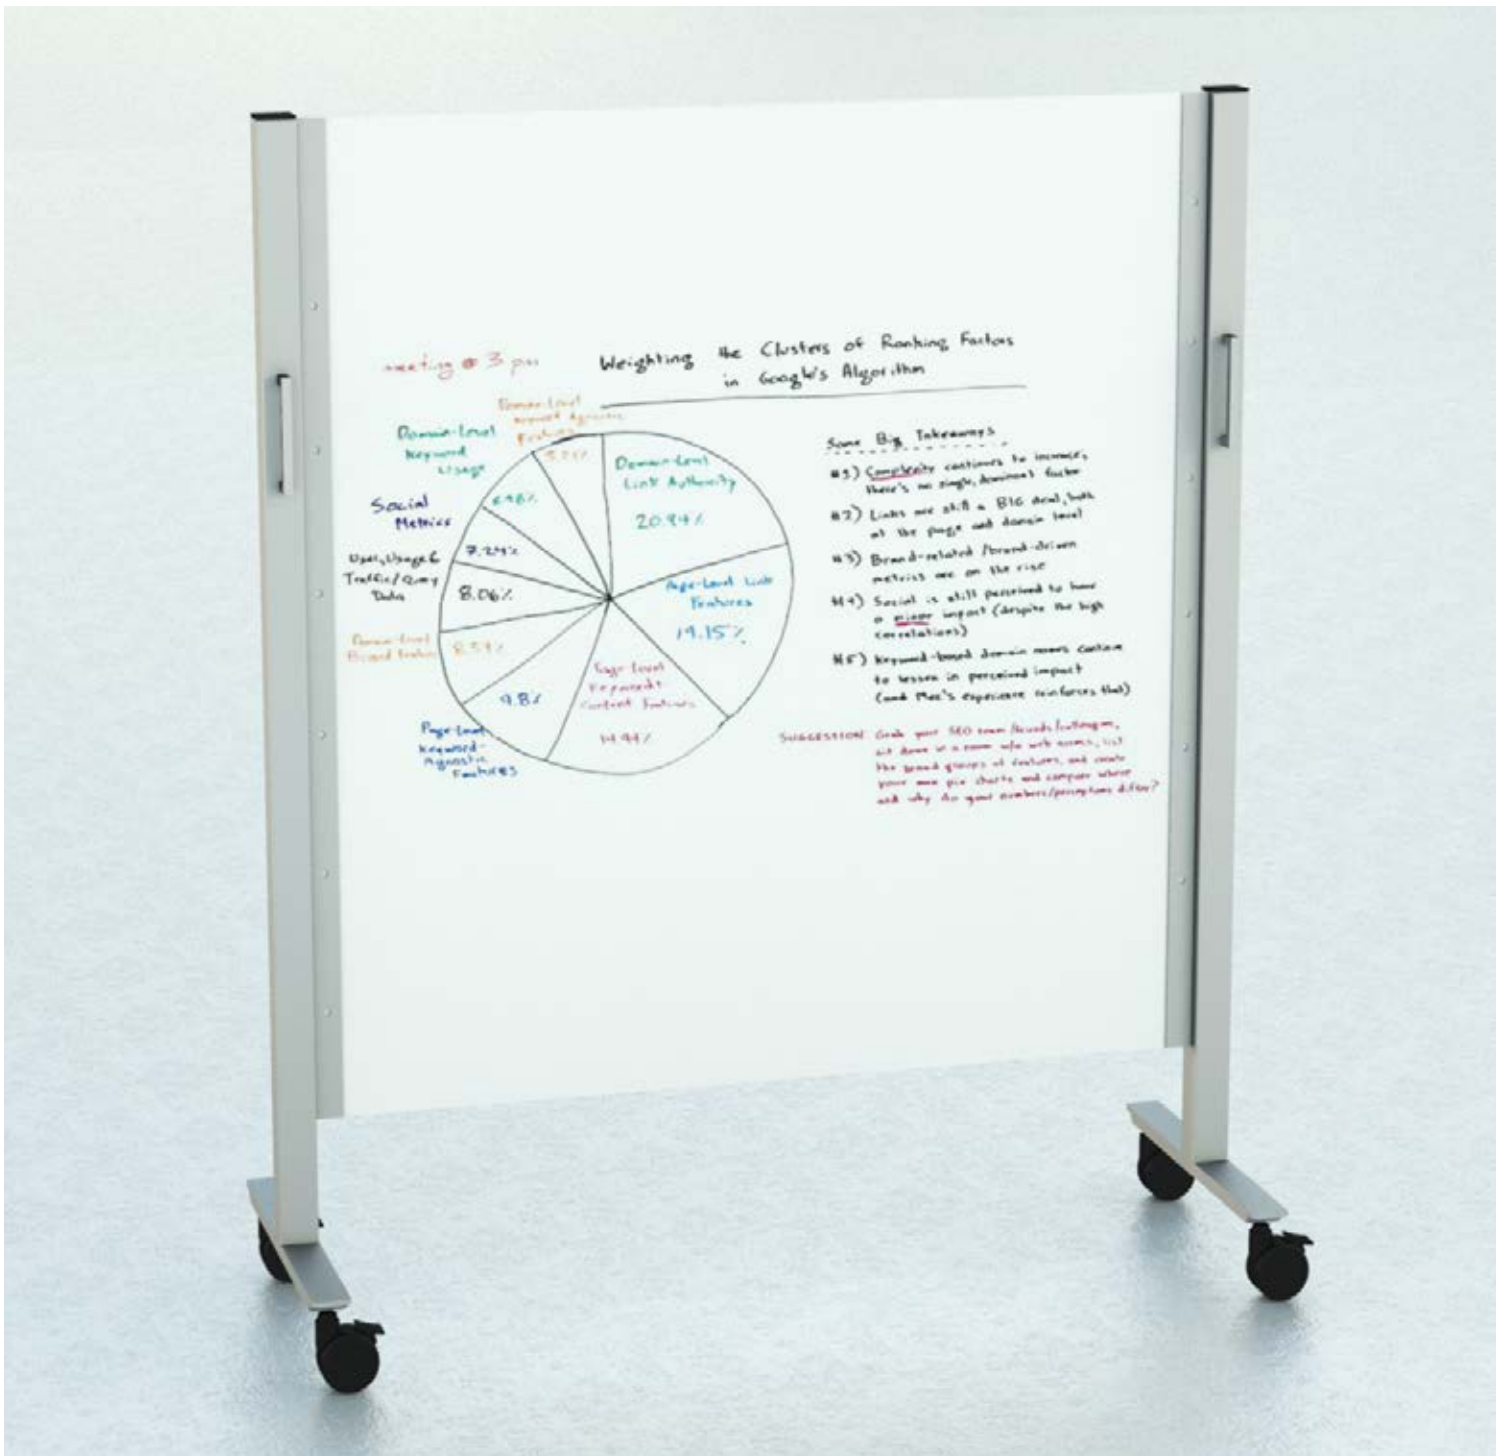 meeting @ 3 pm
Weighting the Clusters of Ranking Factors
in Google's Algorithm
Domain-Level
Keyword Agnostic
Features
5.21%
Domain-Level
Keyword
Usage
6.98%
Social
Metrics
7.24%
User, Usage &
Traffic/Query
Data
8.06%
Domain-Level
Brand Features
8.59%
Page-Level
Keyword-
Agnostic
Features
9.8%
Page-Level
Keyword &
Content Features
14.94%
Page-Level Link
Features
19.15%
Domain-Level
Link Authority
20.94%
Some Big Takeaways
#1) Complexity continues to increase,
there's no single, dominant factor
#2) Links are still a BIG deal, both
at the page and domain level
#3) Brand-related/brand-driven
metrics are on the rise
#4) Social is still perceived to have
a minor impact (despite the high
correlations)
#5) Keyword-based domain names continue
to lessen in perceived impact
(and Moz's experience reinforces that)
SUGGESTION: Grab your SEO team/friends/colleagues,
sit down in a room w/o web access, list
the broad groups of features, and create
your own pie charts and compare where
and why do your numbers/perceptions differ?